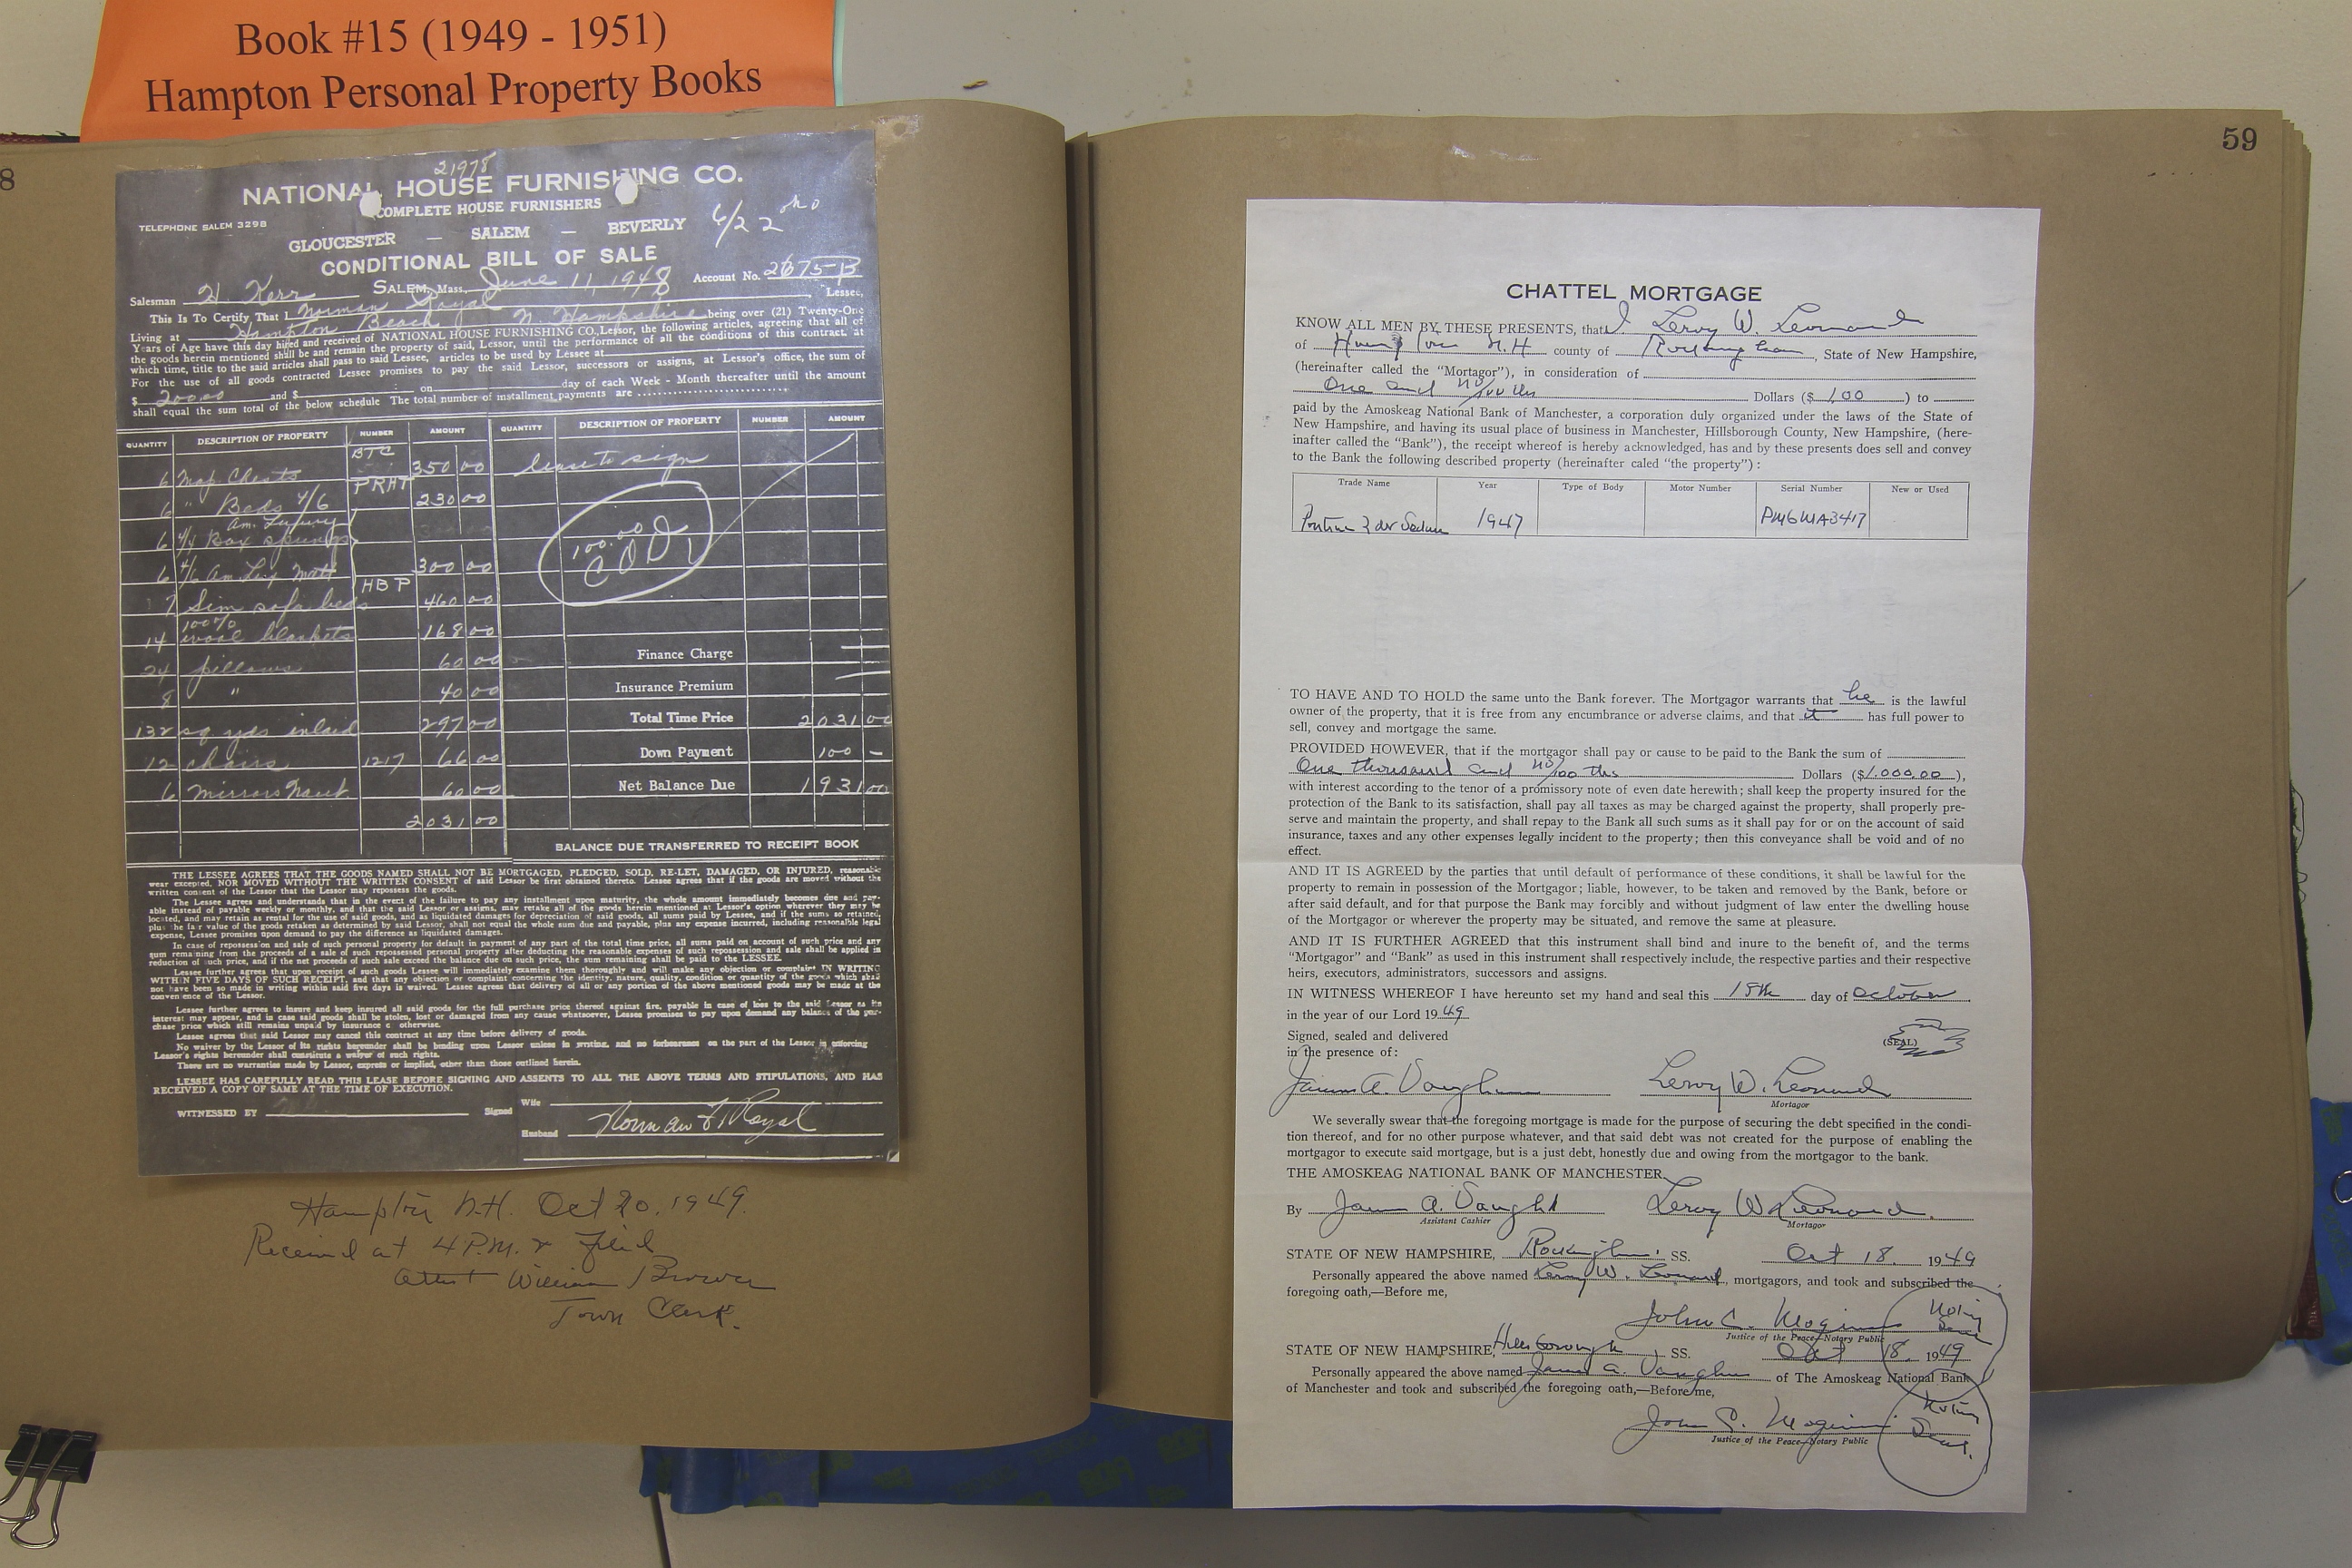 Book #15 (1949 - 1951)
Hampton Personal Property Books
8
21978
NATIONAL HOUSE FURNISHING CO.
COMPLETE HOUSE FURNISHERS
TELEPHONE SALEM 3298
GLOUCESTER — SALEM — BEVERLY
6/22
CONDITIONAL BILL OF SALE
Salesman H. Kerr SALEM, Mass., June 11, 1948 Account No. 2675-B
This Is To Certify That I Norman Royal Lessee,
Living at Hampton Beach N. Hampshire being over (21) Twenty-One
Years of Age have this day hired and received of NATIONAL HOUSE FURNISHING CO., Lessor, the following articles, agreeing that all of
the goods herein mentioned shall be and remain the property of said, Lessor, until the performance of all the conditions of this contract at
which time, title to the said articles shall pass to said Lessee, articles to be used by Lessee at
For the use of all goods contracted Lessee promises to pay the said Lessor, successors or assigns, at Lessor's office, the sum of
$ 200.00 and $ on day of each Week - Month thereafter until the amount
shall equal the sum total of the below schedule The total number of installment payments are
QUANTITY DESCRIPTION OF PROPERTY NUMBER AMOUNT QUANTITY DESCRIPTION OF PROPERTY NUMBER AMOUNT
6 Map Chests BTC 350 00 lease to sign
6 " Beds 4/6 PRHT 230 00
Am. Luxury
6 4/6 Box springs
100.00 COD
6 4/6 Am. Lux Matt 300 00
7 Sim sofa beds HBP 460 00
14 100% wool blankets 168 00
24 pillows 60 00 Finance Charge
8 " 40 00 Insurance Premium
132 sq yds inlaid 297 00 Total Time Price 2031 00
12 chairs 1217 66 00 Down Payment 100 —
6 mirrors 60 00 Net Balance Due 1931 00
2031 00
BALANCE DUE TRANSFERRED TO RECEIPT BOOK
THE LESSEE AGREES THAT THE GOODS NAMED SHALL NOT BE MORTGAGED, PLEDGED, SOLD, RE-LET, DAMAGED, OR INJURED, reasonable
wear excepted, NOR MOVED WITHOUT THE WRITTEN CONSENT of said Lessor be first obtained thereto. Lessee agrees that if the goods are moved without the
written consent of the Lessor that the Lessor may repossess the goods.
The Lessee agrees and understands that in the event of the failure to pay any installment upon maturity, the whole amount immediately becomes due and pay-
able instead of payable weekly or monthly, and that the said Lessor or assigns, may retake all of the goods herein mentioned at Lessor's option wherever they may be
located, and may retain as rental for the use of said goods, and as liquidated damages for depreciation of said goods, all sums paid by Lessee, and if the sums so retained,
plus the fair value of the goods retaken as determined by said Lessor, shall not equal the whole sum due and payable, plus any expense incurred, including reasonable legal
expense, Lessee promises upon demand to pay the difference as liquidated damages.
In case of repossession and sale of such personal property for default in payment of any part of the total time price, all sums paid on account of such price and any
sum remaining from the proceeds of a sale of such repossessed personal property after deducting the reasonable expenses of such repossession and sale shall be applied in
reduction of such price, and if the net proceeds of such sale exceed the balance due on such price, the sum remaining shall be paid to the LESSEE.
Lessee further agrees that upon receipt of such goods Lessee will immediately examine them thoroughly and will make any objection or complaint IN WRITING
WITHIN FIVE DAYS OF SUCH RECEIPT, and that any objection or complaint concerning the identity, nature, quality, condition or quantity of the goods which shall
not have been so made in writing within said five days is waived. Lessee agrees that delivery of all or any portion of the above mentioned goods may be made at the
convenience of the Lessor.
Lessee further agrees to insure and keep insured all said goods for the full purchase price thereof against fire, payable in case of loss to the said Lessor as its
interest may appear, and in case said goods shall be stolen, lost or damaged from any cause whatsoever, Lessee promises to pay upon demand any balance of the pur-
chase price which still remains unpaid by insurance or otherwise.
Lessee agrees that said Lessor may cancel this contract at any time before delivery of goods.
No waiver by the Lessor of its rights hereunder shall be binding upon Lessor unless in writing, and no forbearance on the part of the Lessor in enforcing
Lessor's rights hereunder shall constitute a waiver of such rights.
There are no warranties made by Lessor, express or implied, other than those outlined herein.
LESSEE HAS CAREFULLY READ THIS LEASE BEFORE SIGNING AND ASSENTS TO ALL THE ABOVE TERMS AND STIPULATIONS, AND HAS
RECEIVED A COPY OF SAME AT THE TIME OF EXECUTION.
WITNESSED BY Signed Wife
Husband Norman F. Royal
Hampton N.H. Oct 20, 1949.
Received at 4 P.M. & filed
Attest William Brower
Town Clerk.
59
CHATTEL MORTGAGE
KNOW ALL MEN BY THESE PRESENTS, that I Leroy W. Leonard
of Hampton N.H county of Rockingham, State of New Hampshire,
(hereinafter called the "Mortagor"), in consideration of
One and no/100 ths Dollars ($ 1.00 ) to
paid by the Amoskeag National Bank of Manchester, a corporation duly organized under the laws of the State of
New Hampshire, and having its usual place of business in Manchester, Hillsborough County, New Hampshire, (here-
inafter called the "Bank"), the receipt whereof is hereby acknowledged, has and by these presents does sell and convey
to the Bank the following described property (hereinafter caled "the property") :
Trade Name Year Type of Body Motor Number Serial Number New or Used
Pontiac 2 dr Sedan 1947 PM6MA3417
TO HAVE AND TO HOLD the same unto the Bank forever. The Mortgagor warrants that he is the lawful
owner of the property, that it is free from any encumbrance or adverse claims, and that it has full power to
sell, convey and mortgage the same.
PROVIDED HOWEVER, that if the mortgagor shall pay or cause to be paid to the Bank the sum of
One thousand and no/100 ths Dollars ($1.000.00),
with interest according to the tenor of a promissory note of even date herewith; shall keep the property insured for the
protection of the Bank to its satisfaction, shall pay all taxes as may be charged against the property, shall properly pre-
serve and maintain the property, and shall repay to the Bank all such sums as it shall pay for or on the account of said
insurance, taxes and any other expenses legally incident to the property; then this conveyance shall be void and of no
effect.
AND IT IS AGREED by the parties that until default of performance of these conditions, it shall be lawful for the
property to remain in possession of the Mortgagor; liable, however, to be taken and removed by the Bank, before or
after said default, and for that purpose the Bank may forcibly and without judgment of law enter the dwelling house
of the Mortgagor or wherever the property may be situated, and remove the same at pleasure.
AND IT IS FURTHER AGREED that this instrument shall bind and inure to the benefit of, and the terms
"Mortgagor" and "Bank" as used in this instrument shall respectively include, the respective parties and their respective
heirs, executors, administrators, successors and assigns.
IN WITNESS WHEREOF I have hereunto set my hand and seal this 18th day of October
in the year of our Lord 1949
Signed, sealed and delivered
in the presence of:
(SEAL)
James A. Vaughn Leroy W. Leonard
Mortagor
We severally swear that the foregoing mortgage is made for the purpose of securing the debt specified in the condi-
tion thereof, and for no other purpose whatever, and that said debt was not created for the purpose of enabling the
mortgagor to execute said mortgage, but is a just debt, honestly due and owing from the mortgagor to the bank.
THE AMOSKEAG NATIONAL BANK OF MANCHESTER
By James A. Vaughn Leroy W Leonard.
Assistant Cashier Mortagor
STATE OF NEW HAMPSHIRE, Rockingham SS. Oct 18. 1949
Personally appeared the above named Leroy W. Leonard, mortgagors, and took and subscribed the
foregoing oath,—Before me,
John C. Notary Seal
Justice of the Peace—Notary Public
STATE OF NEW HAMPSHIRE, Hillsborough SS. Oct 18. 1949
Personally appeared the above named James A. Vaughn of The Amoskeag National Bank
of Manchester and took and subscribed the foregoing oath,—Before me,
John C. Notary Seal.
Justice of the Peace—Notary Public